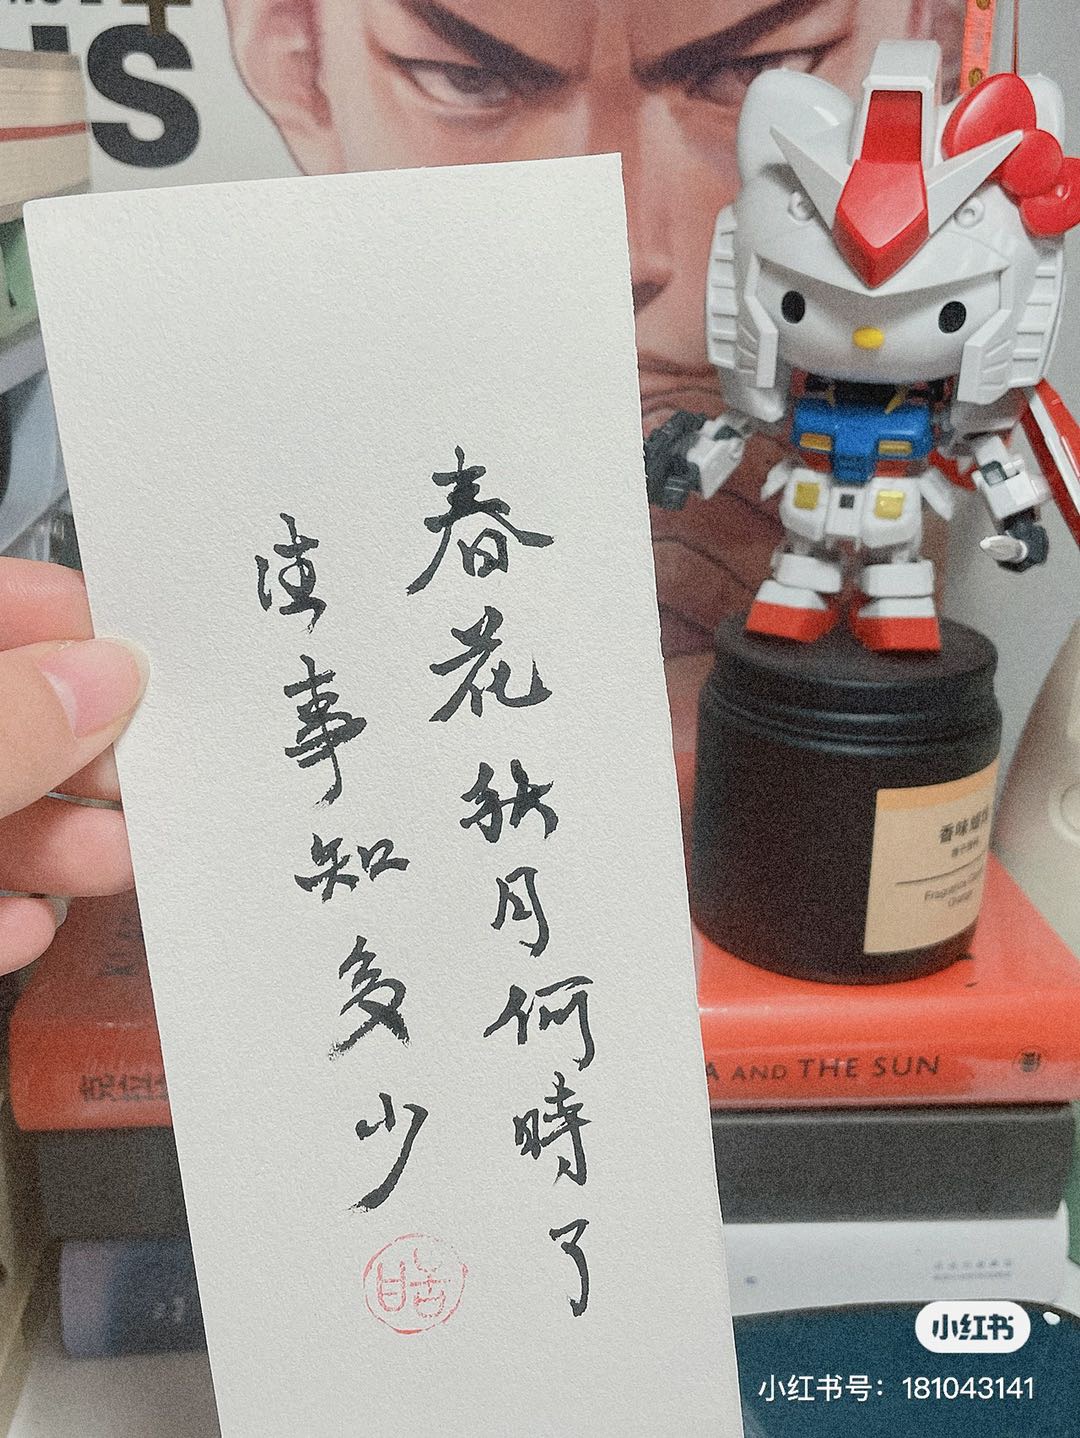 春花秋月何時了
往事知多少
皓
S
香味蠟燭
AND THE SUN
小红书
小红书号：181043141